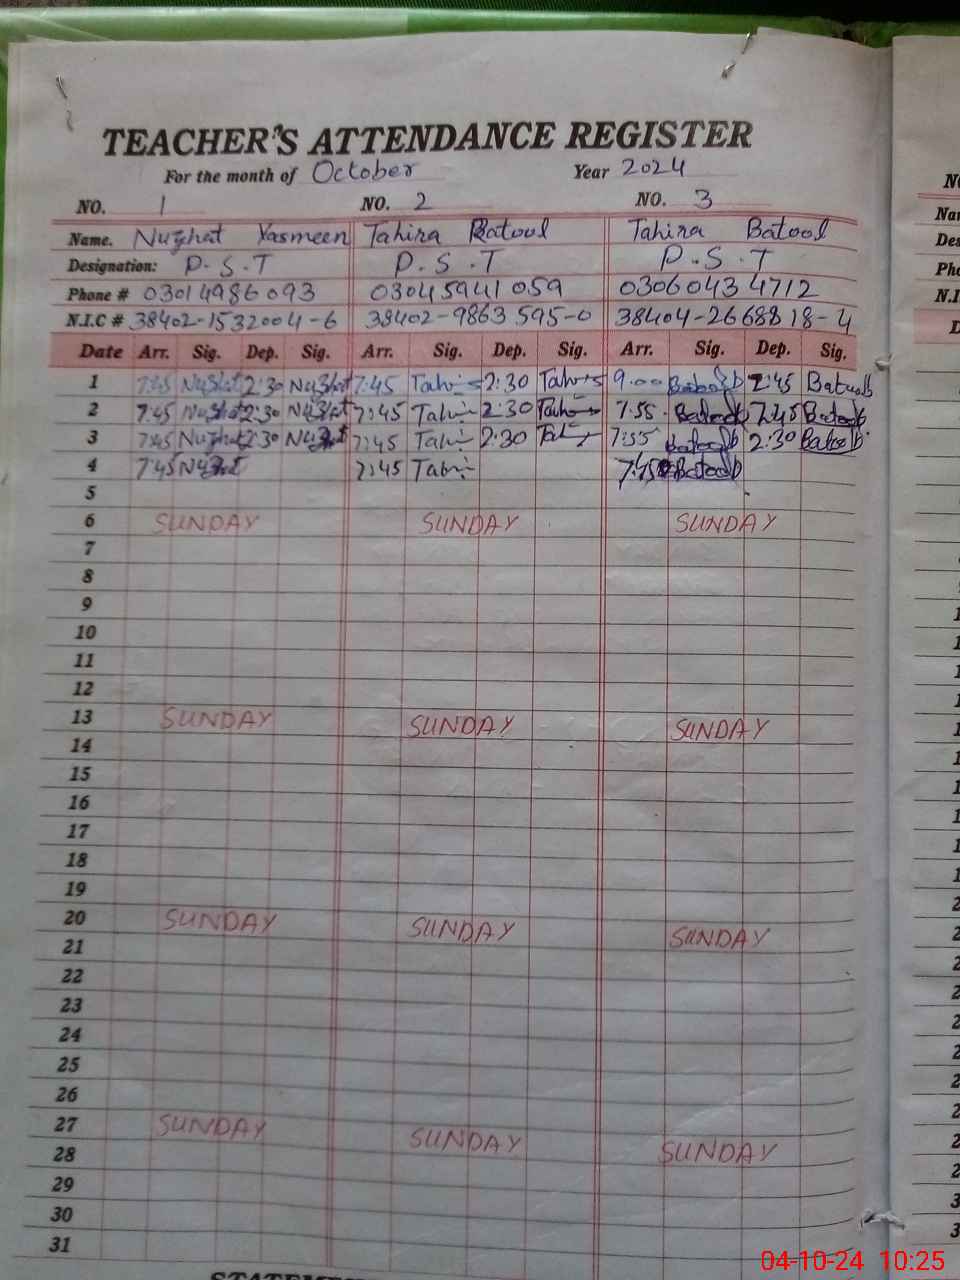 TEACHER'S ATTENDANCE REGISTER
For the month of October Year 2024
NO. 1 NO. 2 NO. 3
Name. Nuzhat Yasmeen Tahira Batool Tahira Batool
Designation: P.S.T P.S.T P.S.T
Phone # 03014986093 03045941059 03060434712
N.I.C # 38402-1532004-6 38402-9863595-0 38404-2668818-4
Date Arr. Sig. Dep. Sig. Arr. Sig. Dep. Sig. Arr. Sig. Dep. Sig.
1 7:45 Nuzhat 2:30 Nuzhat 7:45 2:30 9:00 Batool 2:45 Batool
2 7:45 Nuzhat 2:30 Nuzhat 7:45 2:30 7:55 Batool 2:45 Batool
3 7:45 Nuzhat 2:30 Nuzhat 7:45 2:30 7:55 Batool 2:30 Batool
4 7:45 Nuzhat 7:45 7:45 Batool
5
6 SUNDAY SUNDAY SUNDAY
7
8
9
10
11
12
13 SUNDAY SUNDAY SUNDAY
14
15
16
17
18
19
20 SUNDAY SUNDAY SUNDAY
21
22
23
24
25
26
27 SUNDAY SUNDAY SUNDAY
28
29
30
31
04-10-24 10:25